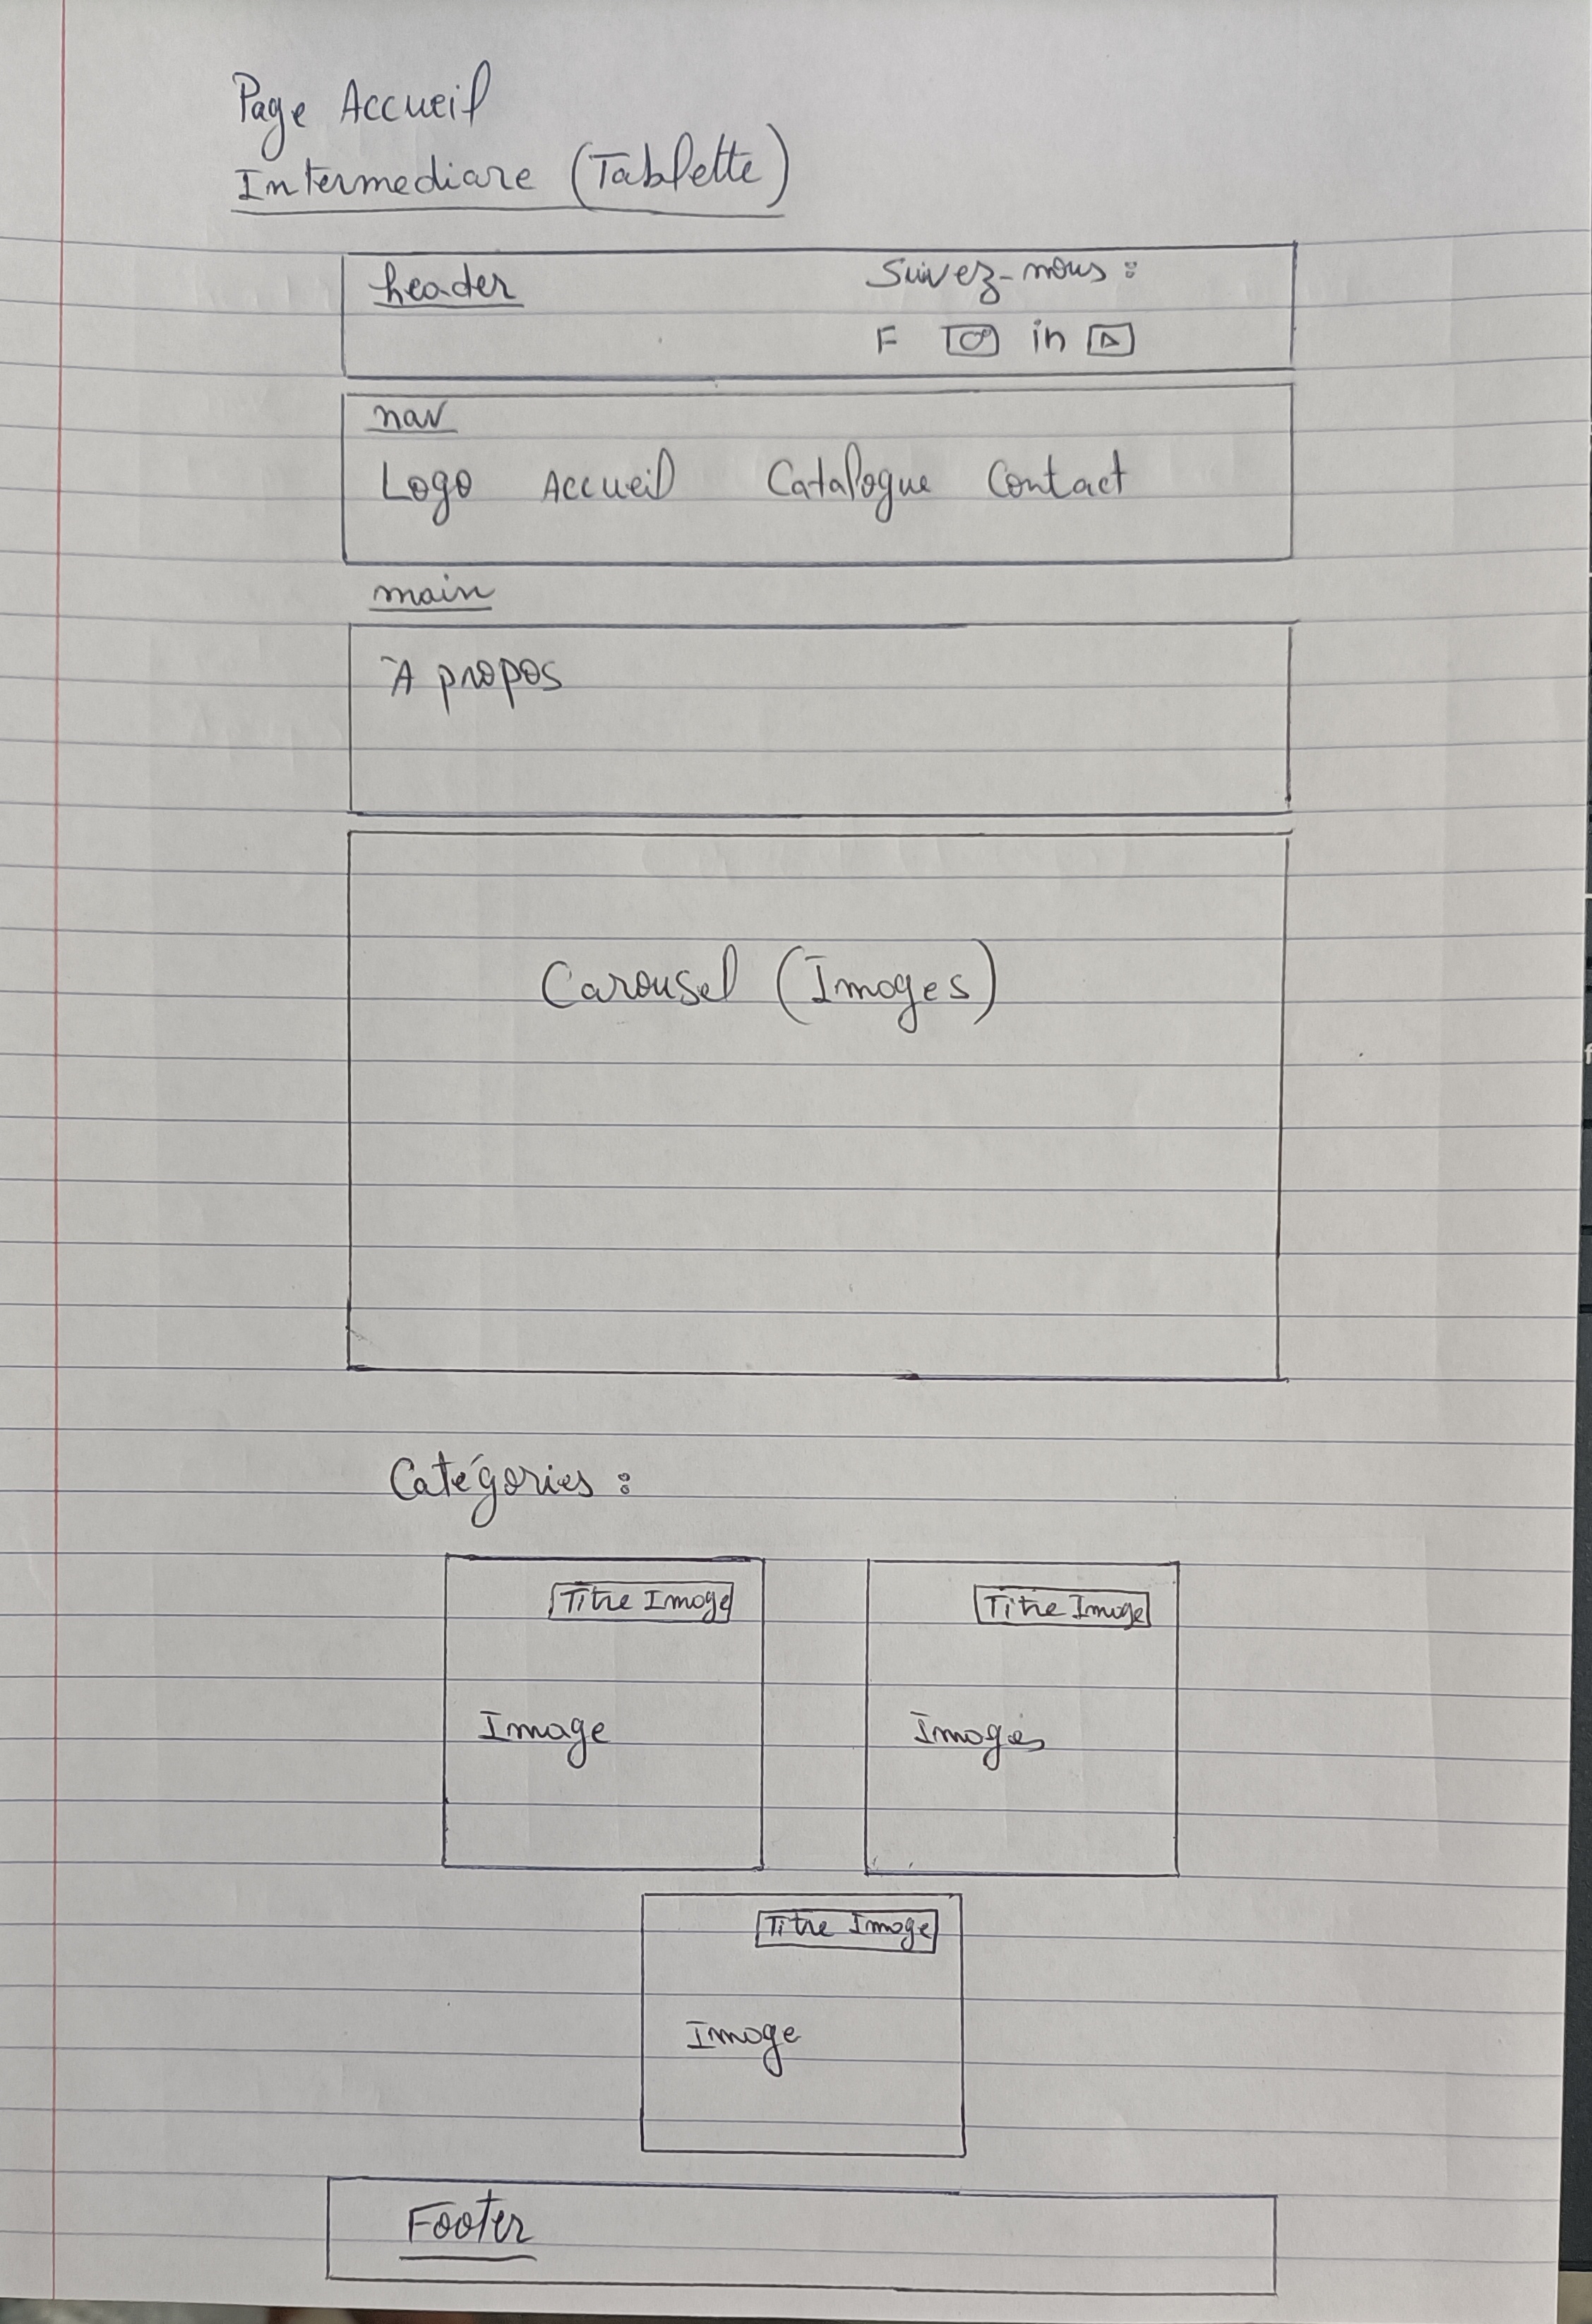 Page Accueil
Intermediare (Tablette)
header
Suivez-nous :
F in
nav
Logo Accueil Catalogue Contact
main
À propos
Carousel (Images)
Catégories :
Titre Image
Titre Image
Image
Images
Titre Image
Image
Footer